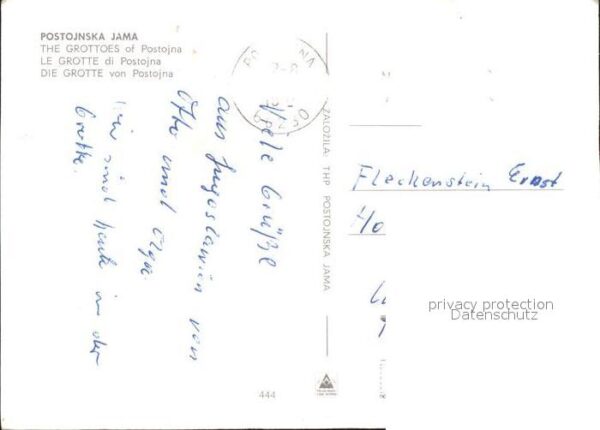 POSTOJNSKA JAMA
THE GROTTOES of Postojna
LE GROTTE di Postojna
DIE GROTTE von Postojna
Viele Grüße
aus Jugoslawien von
Otto und Olga.
Wir sind heute in der
Grotte.
ZALOŽILA: THP POSTOJNSKA JAMA
Fleckenstein Ernst
privacy protection
Datenschutz
444